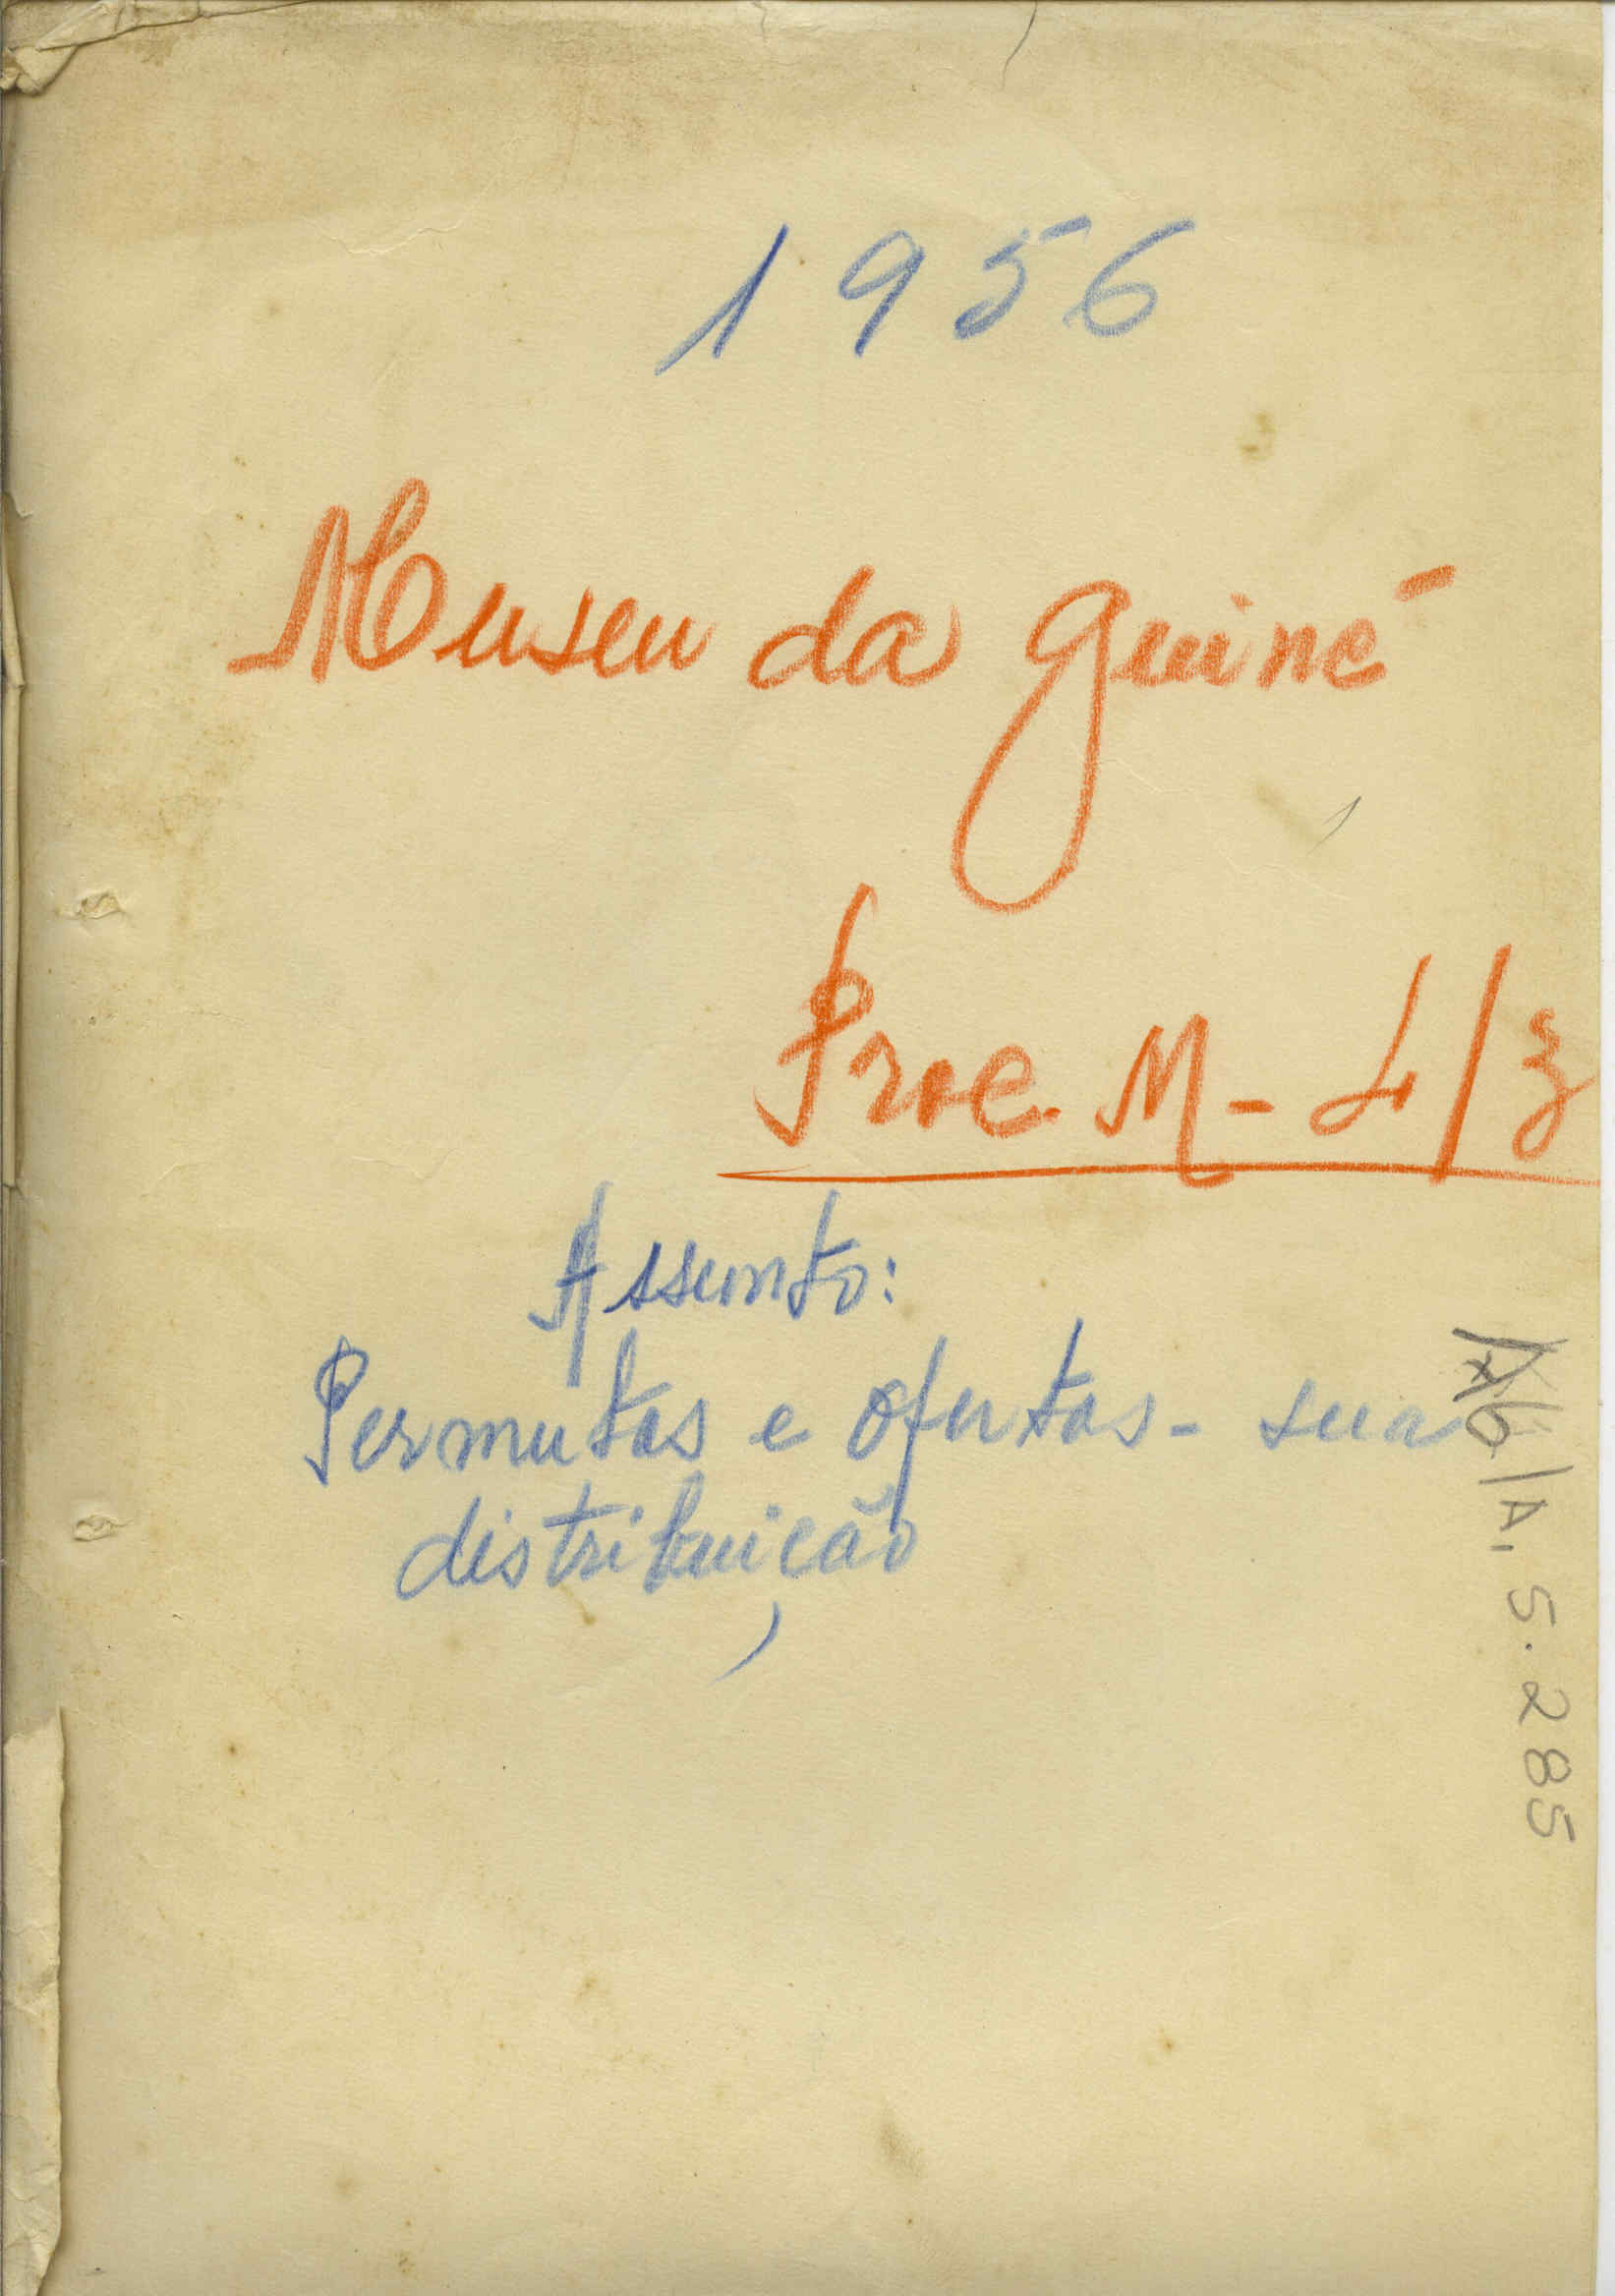 1956
Museu da Guiné
Proc. M - 4/3
Assunto:
Permutas e Ofertas - sua
distribuição
A6/A. 5.285